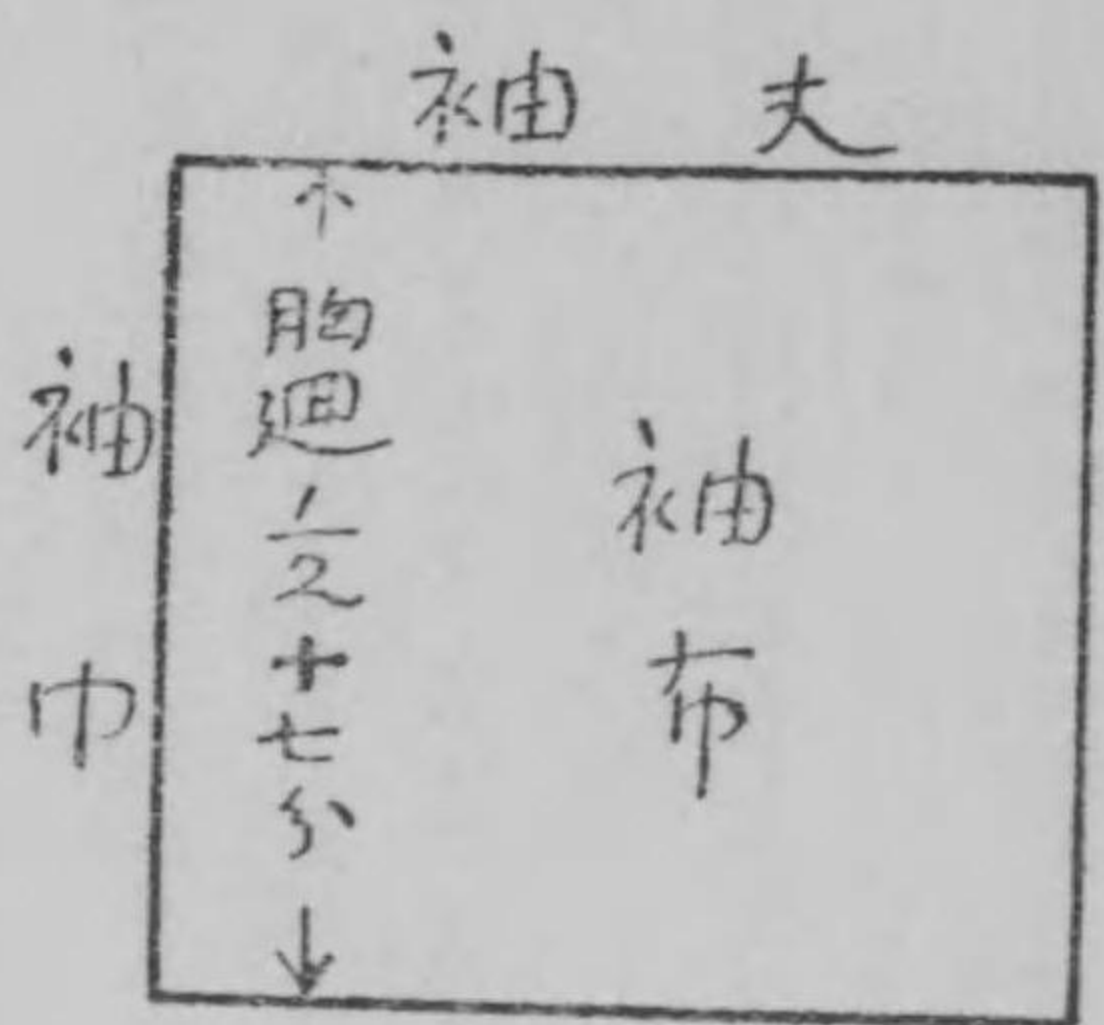 袖丈
袖巾
胸廻½十七分
袖布